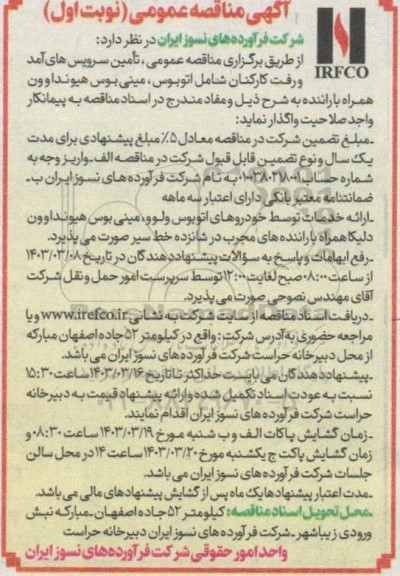 آگهی مناقصه عمومی (نوبت اول)
شرکت فرآورده‌های نسوز ایران در نظر دارد:
از طریق برگزاری مناقصه عمومی، تأمین سرویس‌های آمد
و رفت کارکنان شامل اتوبوس، مینی‌بوس هیوندا و ون
IRFCO
همراه با راننده به شرح ذیل و مفاد مندرج در اسناد مناقصه به پیمانکار
واجد صلاحیت واگذار نماید:
ـ مبلغ تضمین شرکت در مناقصه معادل ۵٪ مبلغ پیشنهادی برای مدت
یک سال و نوع تضمین قابل قبول شرکت در مناقصه الف ـ واریز وجه به
شماره حساب به نام شرکت فرآورده‌های نسوز ایران ب ـ
ضمانتنامه معتبر بانکی دارای اعتبار سه ماهه
ـ ارائه خدمات توسط خودروهای اتوبوس ولوو، مینی‌بوس هیوندا و ون
دلیکا همراه با راننده‌های مجرب در شانزده خط سیر صورت می‌پذیرد.
ـ رفع ابهامات و پاسخ به سؤالات پیشنهاددهندگان در تاریخ ۱۴۰۳/۰۳/۰۸
از ساعت ۰۸:۰۰ صبح لغایت ۱۲:۰۰ توسط سرپرست امور حمل و نقل شرکت
آقای مهندس نصوحی صورت می‌پذیرد.
ـ دریافت اسناد مناقصه از سایت شرکت به نشانی www.irefco.ir و یا
مراجعه حضوری به آدرس شرکت: واقع در کیلومتر ۵۲ جاده اصفهان مبارکه
از محل دبیرخانه حراست شرکت فرآورده‌های نسوز ایران می‌باشد.
ـ پیشنهاددهندگان می‌بایست حداکثر تا تاریخ ۱۴۰۳/۰۳/۱۶ ساعت ۱۵:۳۰
نسبت به عودت اسناد تکمیل شده و ارائه پیشنهاد قیمت به دبیرخانه
حراست شرکت فرآورده‌های نسوز ایران اقدام نمایند.
ـ زمان گشایش پاکات الف و ب شنبه مورخ ۱۴۰۳/۰۳/۱۹ ساعت ۰۸:۳۰ و
زمان گشایش پاکت ج یکشنبه مورخ ۱۴۰۳/۰۳/۲۰ ساعت ۱۴ در محل سالن
جلسات شرکت فرآورده‌های نسوز ایران می‌باشد.
ـ مدت اعتبار پیشنهادها یک ماه پس از گشایش پیشنهادهای مالی می‌باشد.
ـ محل تحویل اسناد مناقصه: کیلومتر ۵۲ جاده اصفهان ـ مبارکه نبش
ورودی زیباشهر ـ شرکت فرآورده‌های نسوز ایران دبیرخانه حراست
واحد امور حقوقی شرکت فرآورده‌های نسوز ایران